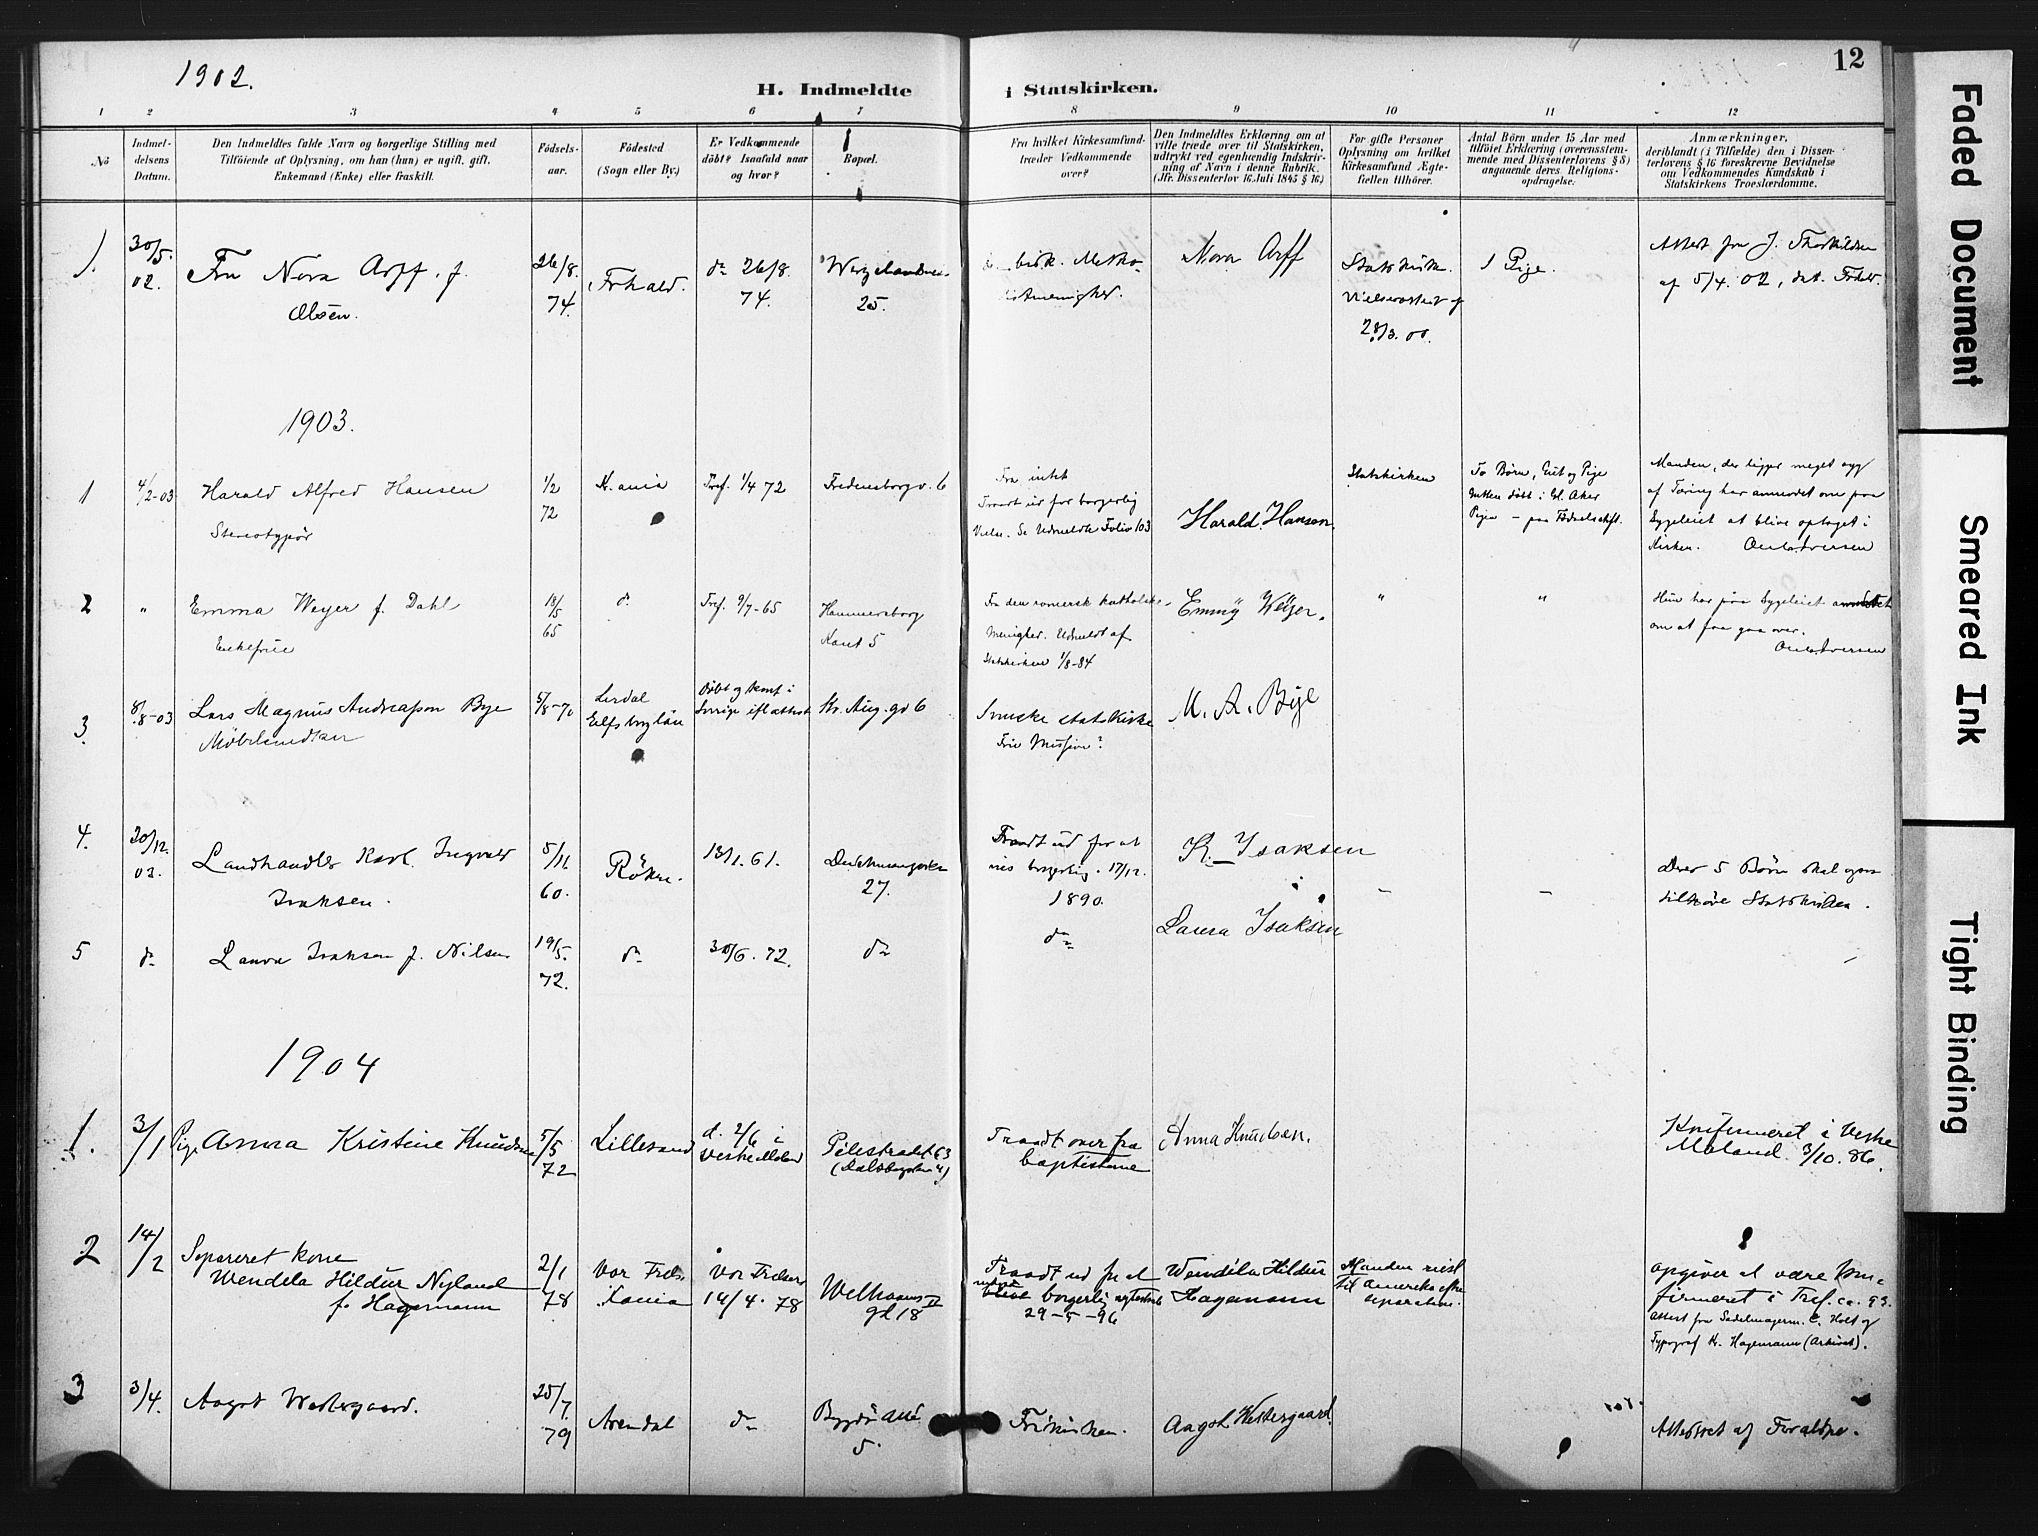 1902.
12
H. Indmeldte i Statskirken.
1 2 3 4 5 6 7 8 9 10 11 12
No
Indmel-
delsens
Datum.
Den Indmeldtes fulde Navn og borgerlige Stilling med
Tilföiende af Oplysning, om han (hun) er ugift, gift,
Enkemand (Enke) eller fraskilt.
Födsels-
aar.
Födested
(Sogn eller By.)
Er Vedkommende
döbt? Isaafald naar
og hvor?
Bopæl.
Fra hvilket Kirkesamfund
træder Vedkommende
over?
Den Indmeldtes Erklæring om at
ville træde over til Statskirken,
udtrykt ved egenhændig Indskriv-
ning af Navn i denne Rubrik.
(Jfr. Dissenterlov 16 Juli 1845 § 16.)
For gifte Personer
Oplysning om hvilket
Kirkesamfund Ægte-
fællen tilhörer.
Antal Börn under 15 Aar med
tilföiet Erklæring (overensstem-
mende med Dissenterlovens § 8)
angaaende deres Religions-
opdragelse.
Anmærkninger,
deriblandt (i Tilfælde) den i Dissen-
terlovens § 16 foreskrevne Bevidnelse
om Vedkommendes Kundskab i
Statskirkens Troeslærdomme.
1.
30/5.
02.
Fru Nora Arff. f.
Olsen.
26/8.
74.
Frhald.
dn 26/8.
74.
25.
bisk. Metho-
Nora Arff
Statskirke.
Vielsesattest af
28/3. 00.
1 Pige.
Attest fra J. Thorkildsen
af 5/4. 02, dat. Frhald.
1903.
1
4/2-03
Harald Alfred Hansen
Stereotypör
1/2
72
K.ania
Tref. 1/4 72
Fredensborgv. 6
Fra intet
Traadt ud for borgerlig
Vielse. Se Udmeldte Folio 103
Harald Hansen.
Statskirken
To Börn, Gut og Pige
Gutten döbt i Gl. Aker
Pigen - paa Födselsstift.
Manden, der ligger meget syg
af Tæring har anmodet om paa
Sygeleiet at blive optaget i
Kirken.
2
"
Emma Weyer f. Dahl
Enkefrue
18/5
65
do
Tref. 9/7-65
Hammersborg
5
Fra den romersk katholske
Menighed. Udmeldt af
Statskirken 1/8-84
Emmy Weyer.
"
"
Hun har paa Sygeleiet anmodet
om at faa gaa over.
3.
8/8-03
Lars Magnus Andreasson Bye
Möbelsnedker
5/8-70
Lerdal
Elfsborglän
Döbt og konf. i
Sverige ifl. attest
Kr. Aug. gd 6
Svenske statskirke
Frie Mission?
M. A. Bye
4.
20/12.
03.
Landhandler Karl Ingvald
Isaksen.
5/11
60.
Röken.
13/1. 61.
27.
Traadt ud for at
vies borgerlig. 17/12.
1890.
K. Isaksen
-
-
Deres 5 Börn skal ogsaa
tilhöre Statskirken.
5
dn
Laura Isaksen f. Nilsen
19/5.
72.
dn
30/6. 72.
dn
dn
Laura Isaksen
1904
1.
3/1
Pige Anna Kristine Knudsen
5/5
72
Lillesand
d. 2/6 i
Vestre Moland
Pilestrædet 63
Traadt over fra
baptisterne
Anna Knudsen.
Konfirmeret i Vestre
Moland 3/10. 86.
2
14/2
Separeret kone
Wendela Hildur Nyland
f. Hagemann
2/1
78
Vor Frels.
Kania
Vor Frelsers
14/4. 78
Welhavens
gd 18 II
Traadt ud for at
blive borgerlig ægteviet
29-5-96
Wendela Hildur
Hagemann
Manden reist
til Amerika efter
separation.
Opgiver at være kon-
firmeret i Tref. ca. 93.
Attest fra Sadelmagerm. C. Holt og
Typograf K. Hagemann (Arkivet).
3
3/4.
Aagot Westergaard.
25/7.
79
Arendal
dn
Bygdö Allé
5.
Frikirken.
Aagot Westergaard.
Faded Document
Smeared Ink
Tight Binding